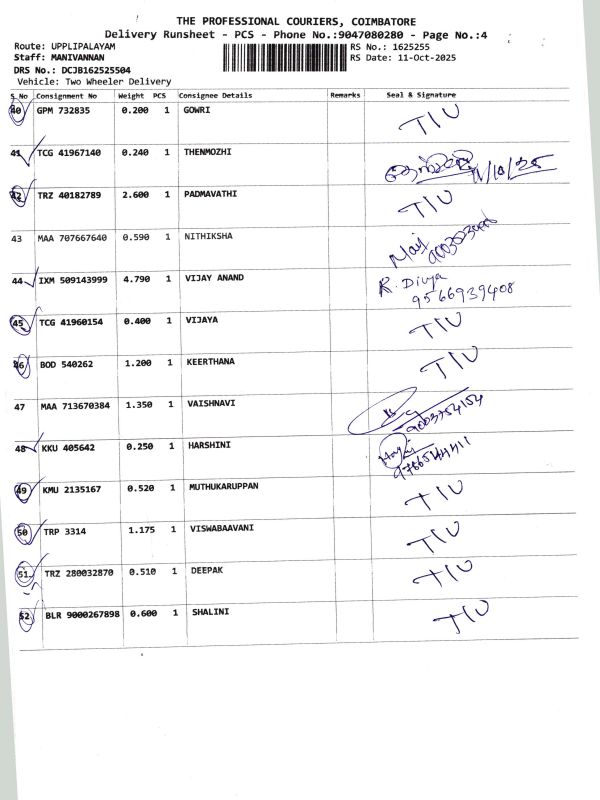 THE PROFESSIONAL COURIERS, COIMBATORE
Delivery Runsheet - PCS - Phone No.:9047080280 - Page No.:4
Route: UPPLIPALAYAM RS No.: 1625255
Staff: MANIVANNAN RS Date: 11-Oct-2025
DRS No.: DCJB162525504
Vehicle: Two Wheeler Delivery
S.No Consignment No Weight PCS Consignee Details Remarks Seal & Signature
40 GPM 732835 0.200 1 GOWRI TIU
41 TCG 41967140 0.240 1 THENMOZHI 11/10/25
42 TRZ 40182789 2.600 1 PADMAVATHI TIU
43 MAA 707667640 0.590 1 NITHIKSHA
44 IXM 509143999 4.790 1 VIJAY ANAND R. Divya
9566939408
45 TCG 41960154 0.400 1 VIJAYA TIU
46 BOD 540262 1.200 1 KEERTHANA TIU
47 MAA 713670384 1.350 1 VAISHNAVI 9003754154
48 KKU 405642 0.250 1 HARSHINI
49 KMU 2135167 0.520 1 MUTHUKARUPPAN TIU
50 TRP 3314 1.175 1 VISWABAAVANI TIU
51 TRZ 280032870 0.510 1 DEEPAK TIU
52 BLR 9000267898 0.600 1 SHALINI TIU